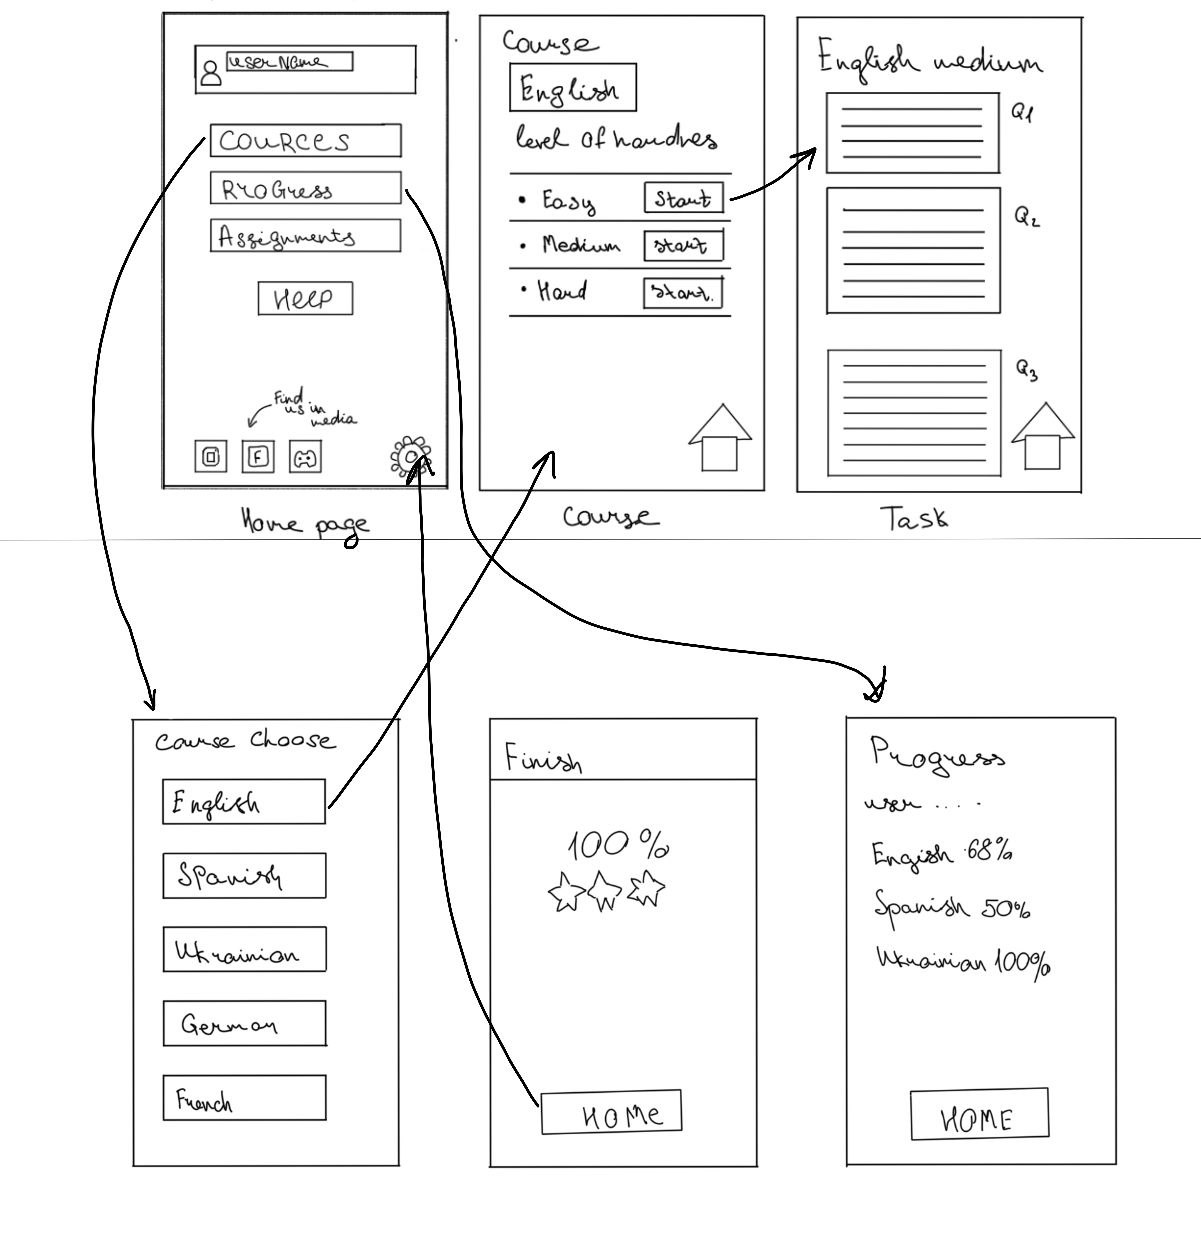 userName
COURCES
Progress
Assignments
HELP
Find
us in
media
F
Home page
Course
English
level of hardnes
• Easy Start
• Medium start
• Hard Start.
Course
English medium
Q1
Q2
Q3
Task
Course Choose
English
Spanish
Ukrainian
German
French
Finish
100%
HOMe
Progress
user ....
Engish 68%
Spanish 50%
Ukrainian 100%
HOME